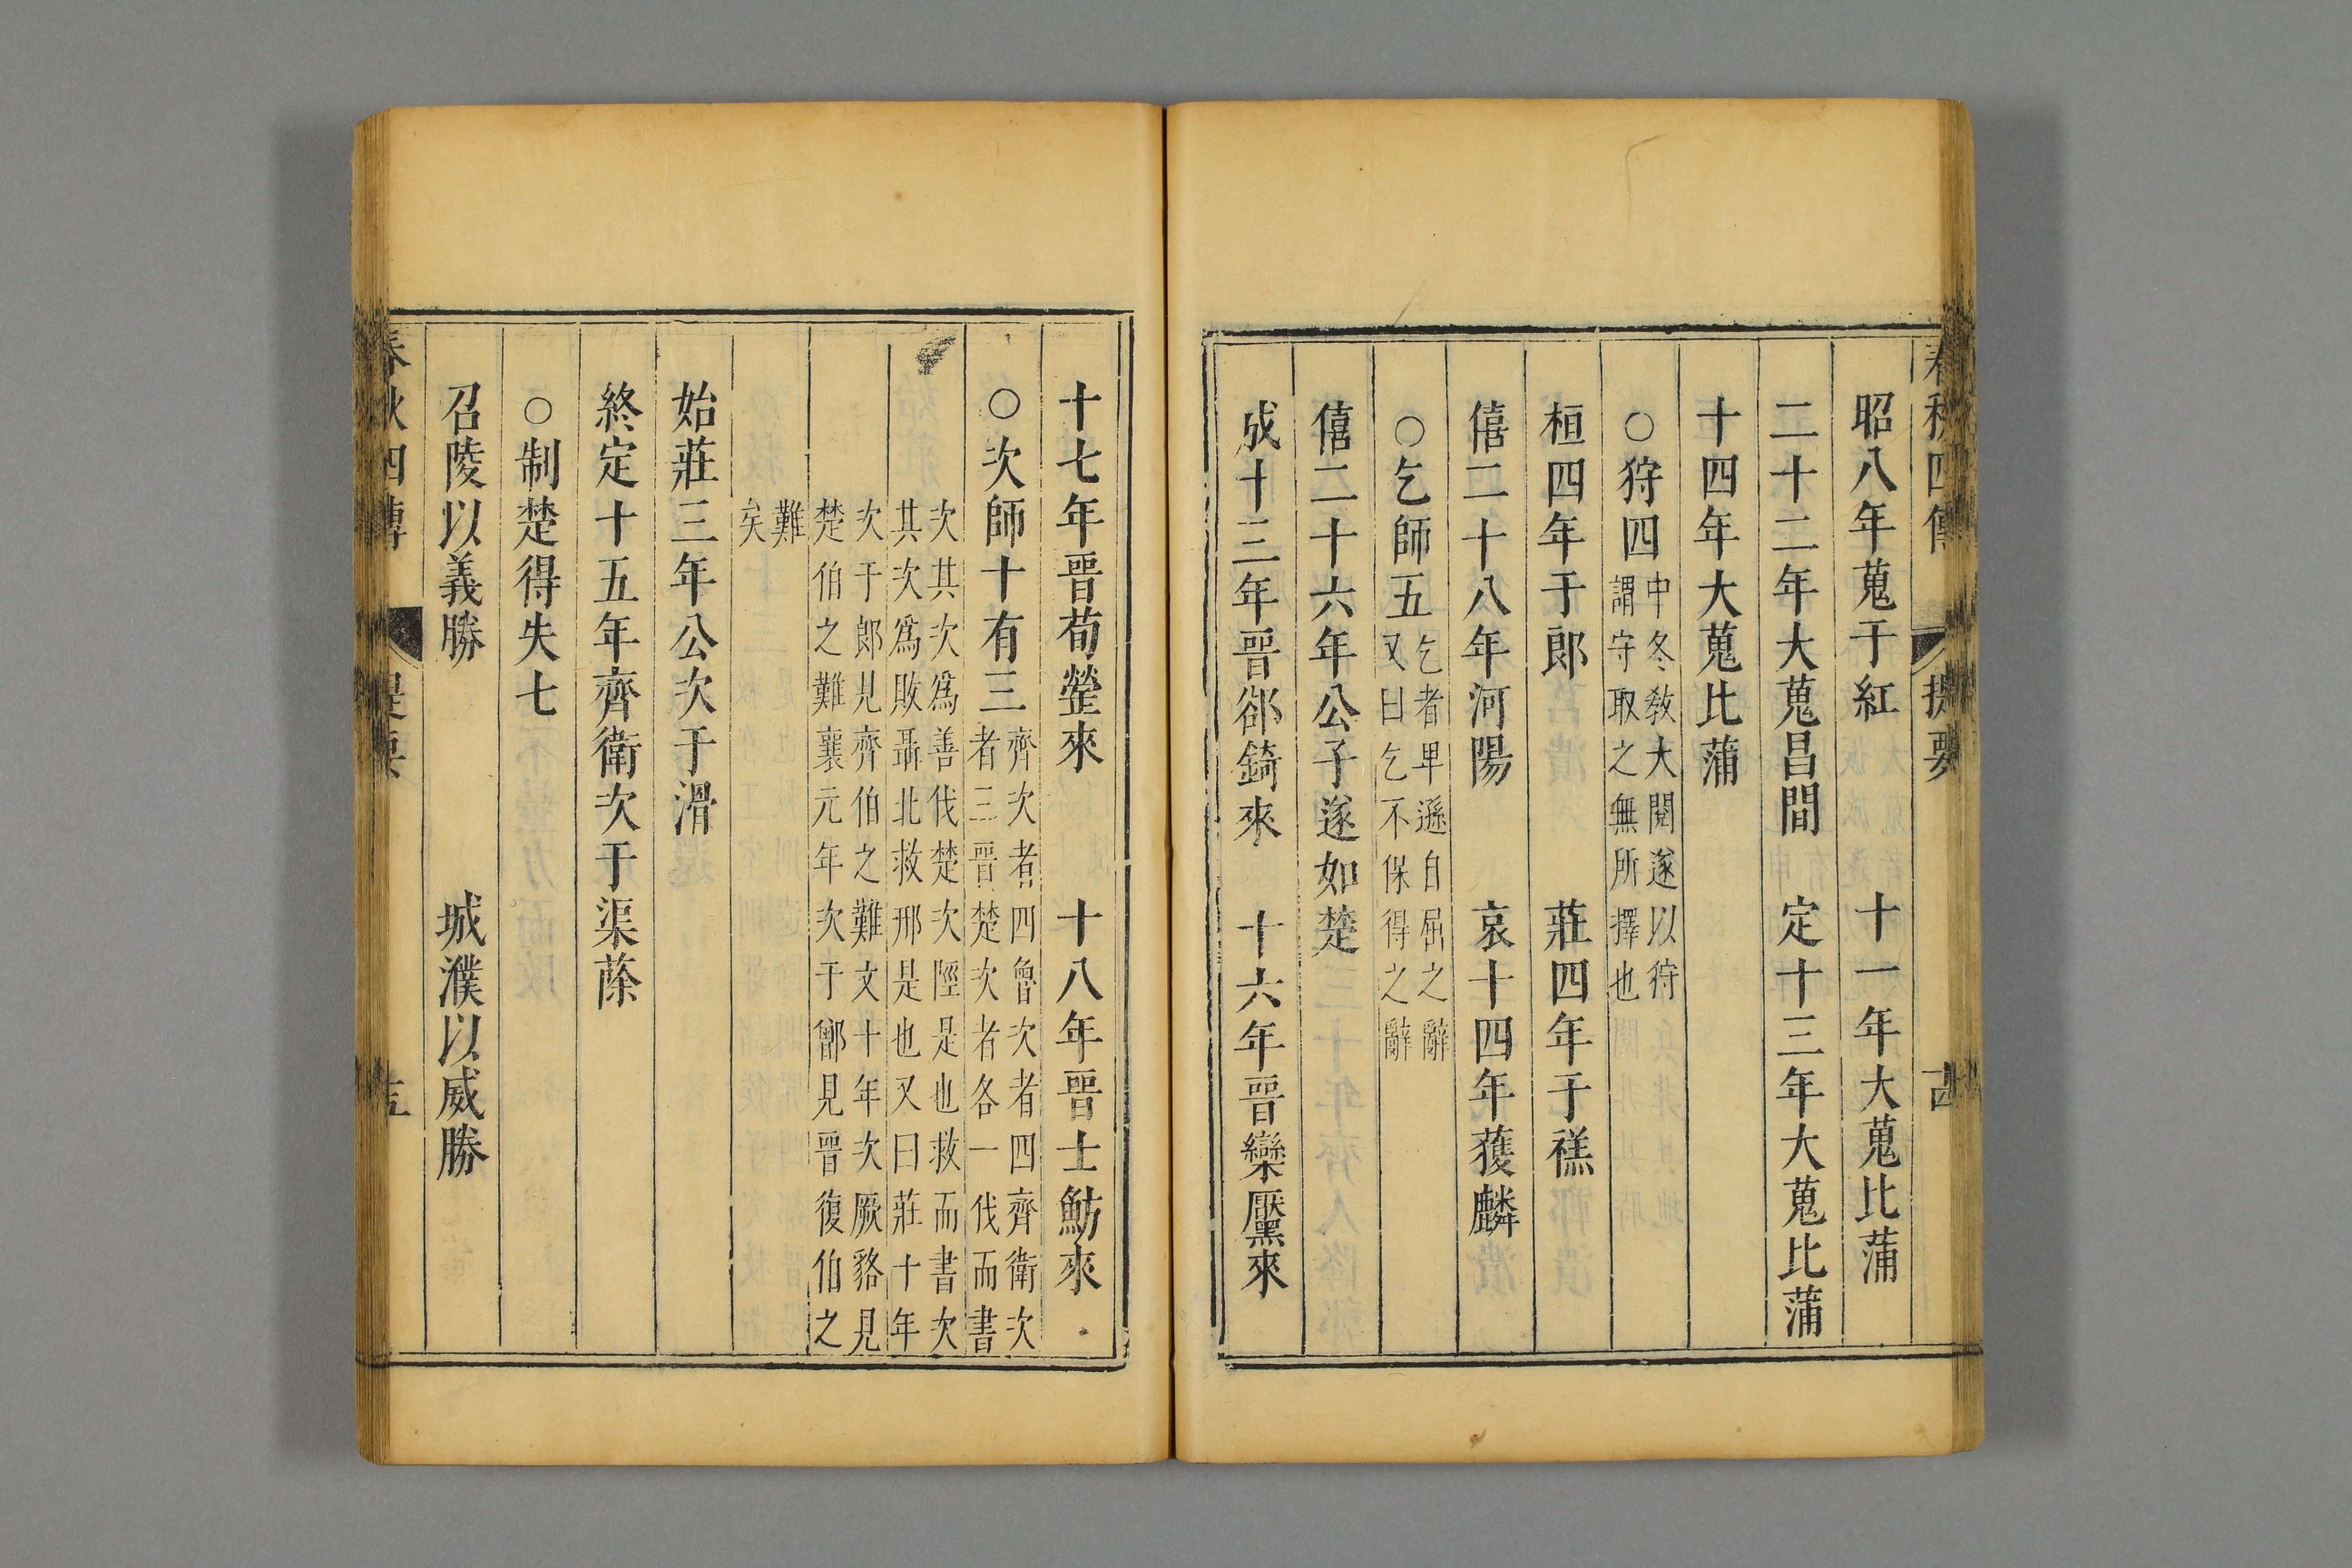 春秋四傳 提要 古
昭八年蒐于紅 十一年大蒐比蒲
二十二年大蒐昌間 定十三年大蒐比蒲
十四年大蒐比蒲
○狩四 中冬敎大閱遂以狩 謂守取之無所擇也
桓四年于郎 莊四年于禚
僖二十八年河陽 哀十四年獲麟
○乞師五 乞者卑遜自屈之辭 又曰乞不保得之辭
僖二十六年公子遂如楚
成十三年晉郤錡來 十六年晉欒黶來
十七年晉荀罃來 十八年晉士魴來
○次師十有三 齊次者四魯次者四齊衛次 者三晉楚次者各一伐而書
次其次爲善伐楚次陘是也救而書次 其次爲敗聶北救邢是也又曰莊十年
次于郎見齊伯之難文十年次厥貉見 楚伯之難襄元年次于鄫見晉復伯之
難 矣
始莊三年公次于滑
終定十五年齊衛次于渠蒢
○制楚得失七
召陵以義勝 城濮以威勝
春秋四傳 提要